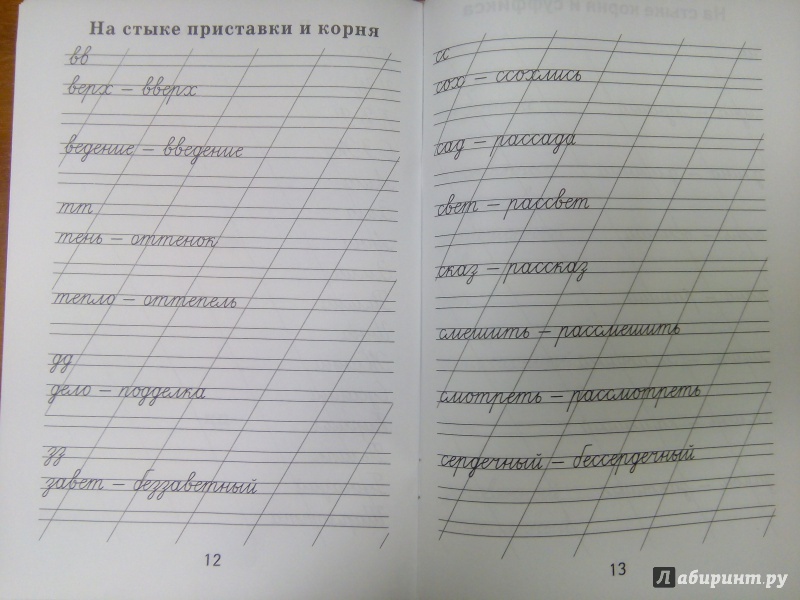 На стыке приставки и корня
вв
верх – вверх
ведение – введение
тт
тень – оттенок
тепло – оттепель
дд
дело – подделка
зз
завет – беззаветный
12
На стыке корня и суффикса
сс
сох – ссохлись
сад – рассада
свет – рассвет
сказ – рассказ
смешить – рассмешить
смотреть – рассмотреть
сердечный – бессердечный
13
Лабиринт.ру